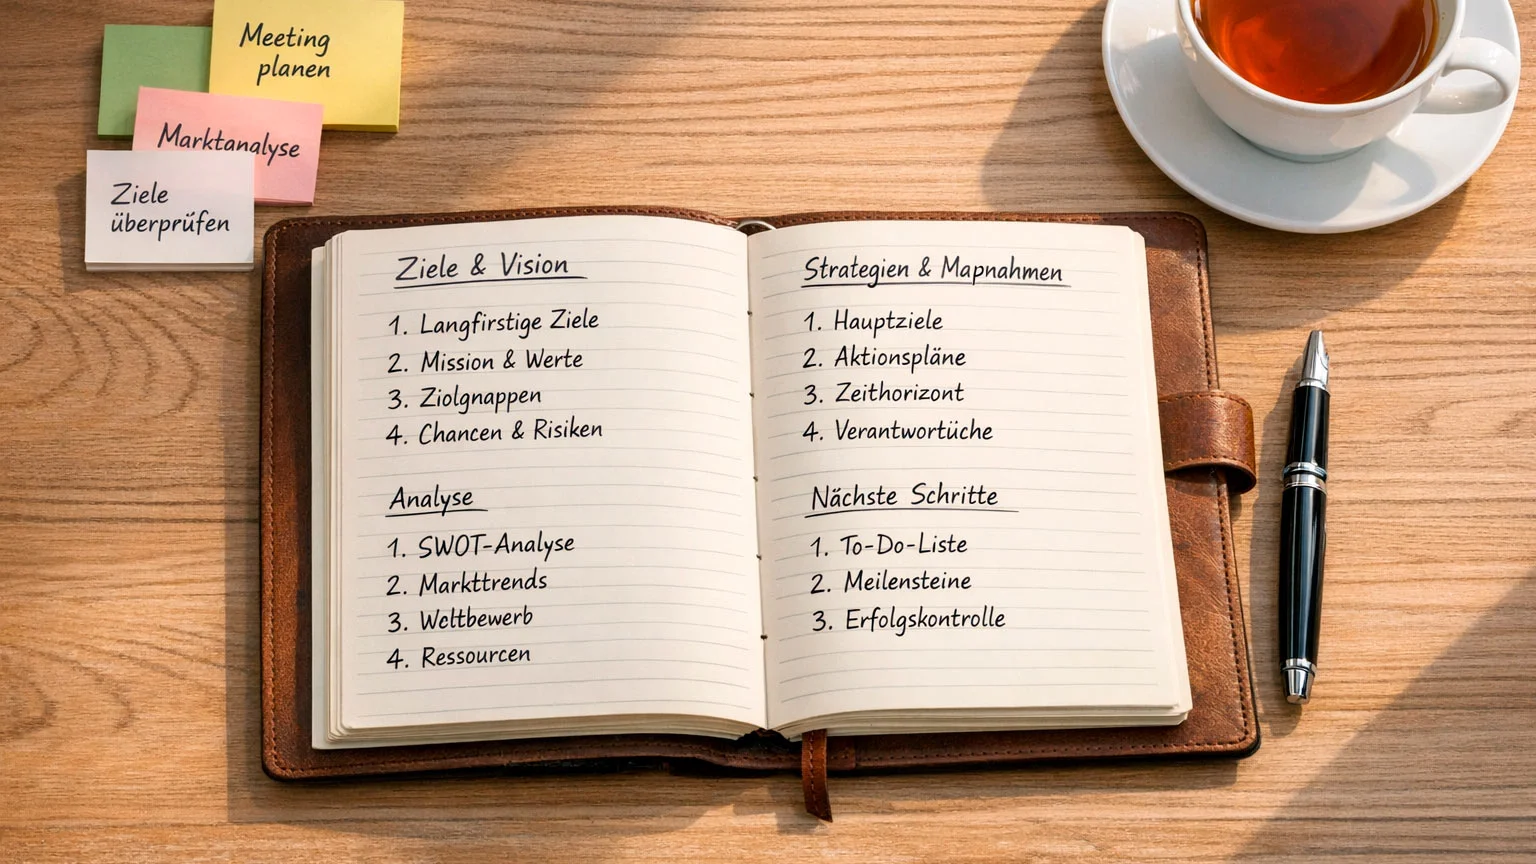 Meeting
planen
Marktanalyse
Ziele
überprüfen
Ziele & Vision
1. Langfirstige Ziele
2. Mission & Werte
3. Ziolgnappen
4. Chancen & Risiken
Analyse
1. SWOT-Analyse
2. Markttrends
3. Wcltbewerb
4. Ressourcen
Strategien & Mapnahmen
1. Hauptziele
2. Aktionspläne
3. Zeithorizont
4. Verantwortüche
Nächste Schritte
1. To-Do-Liste
2. Meilensteine
3. Erfolgskontrolle